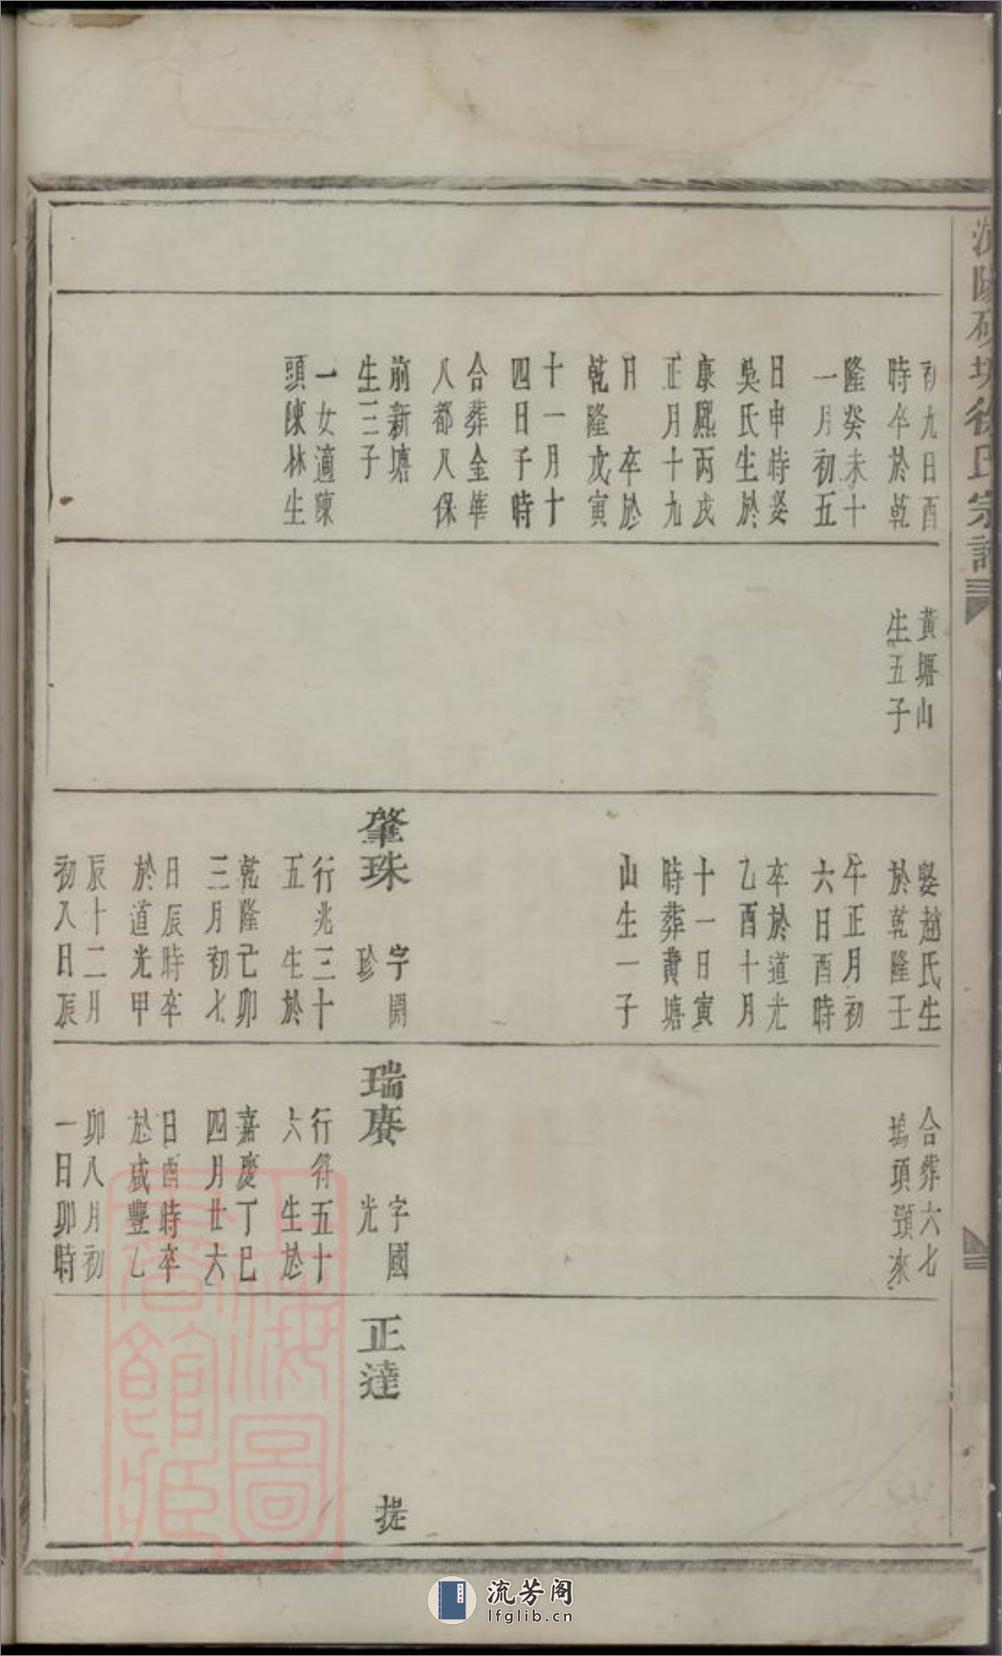 徐氏宗譜
初九日酉
時卒於乾
隆癸未十
一月初五
日申時娶
吳氏生於
康熙丙戌
正月十九
日 卒於
乾隆戊寅
十一月十
四日子時
合葬金華
八都八保
前新塘
生三子
一女適陳
頭陳林生
黃塘山
生五子
娶趙氏生
於乾隆壬
午正月初
六日酉時
卒於道光
乙酉十月
十一日寅
時葬黃塘
山生一子
肇珠
字開
珍
行兆三十
五 生於
乾隆己卯
三月初七
日辰時卒
於道光甲
辰十二月
初入日辰
合葬六七
塢頭
來
瑞賡
字國
光
行得五十
六 生於
嘉慶丁巳
四月廿六
日酉時卒
於咸豐乙
卯八月初
一日卯時
正達
提
上海圖
書館藏
流芳阁
lfglib.cn